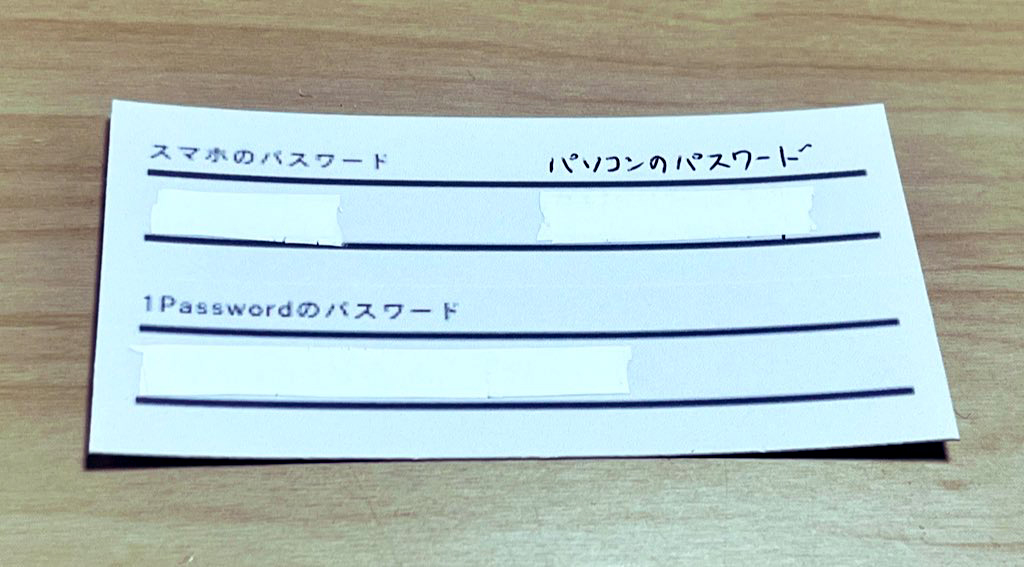 スマホのパスワード パソコンのパスワード
1Passwordのパスワード